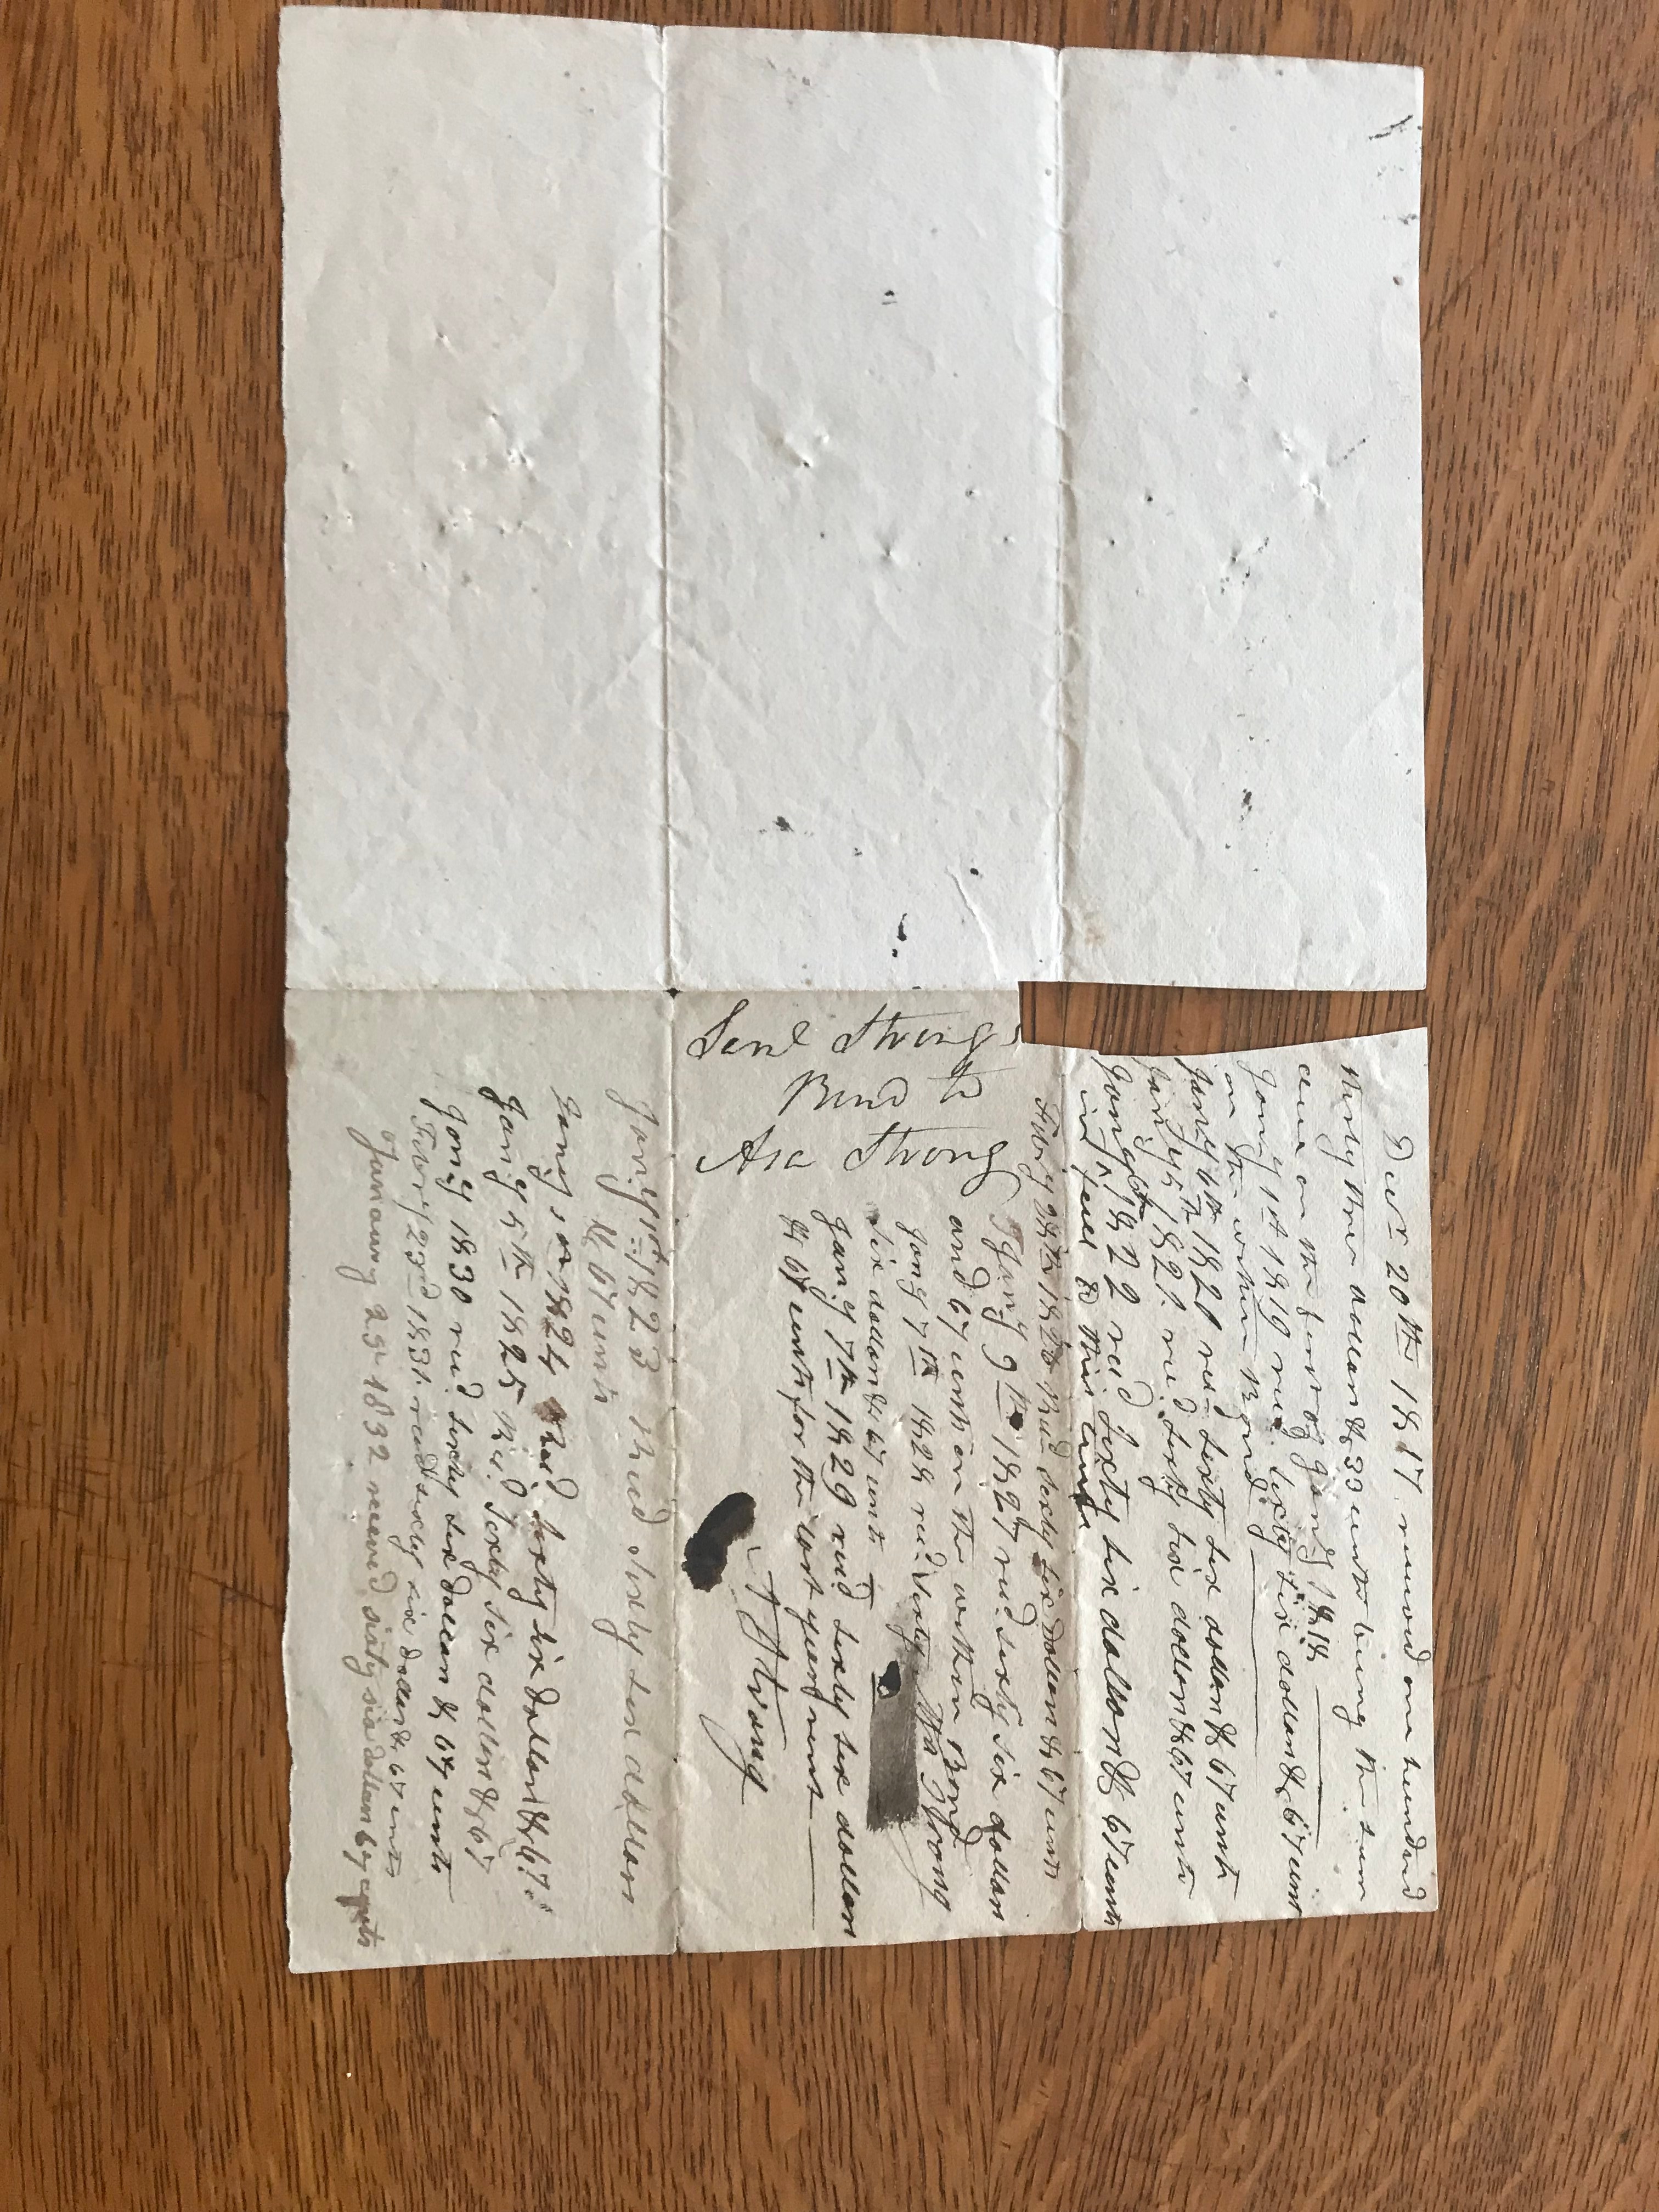 Decr 20th 1817 received one hundred
thirty three dollars & 33 cents being the sum
due on the first of Jany 1818
Jany 1st 1819 recd. sixty six dollars & 67 cent
on the within Bond
Jany 6th 1820 recd sixty six dollars & 67 cents
Jany 5th 1821. recd sixty six dollars & 67 cents
Jany 1822 recd sixty six dollars & 67 cents
in full to this time
1826 Recd sixty six dollars & 67 cents
Jany 9th 1827 recd. sixty six dollars
and 67 cents on the within Bond
Jany 7th 1828 recd. sixty Asa Strong
six dollars & 67 cents
Jany 7th 1829 recd sixty six dollars
& 67 cents for the last years rent
A Strong
Strong
Bond to
Asa Strong
Jany 1823 Recd sixty six dollars
& 67 cents
Jany 1824 Recd sixty six dollars & 67
Jany 5th 1825 Recd. Sixty six dollars & 67
Jany 1830 recd sixty six dollars & 67 cents
Febry 23rd 1831. recd sixty six dollars & 67 cents
January 25 1832 received sixty six dollars 67 cents